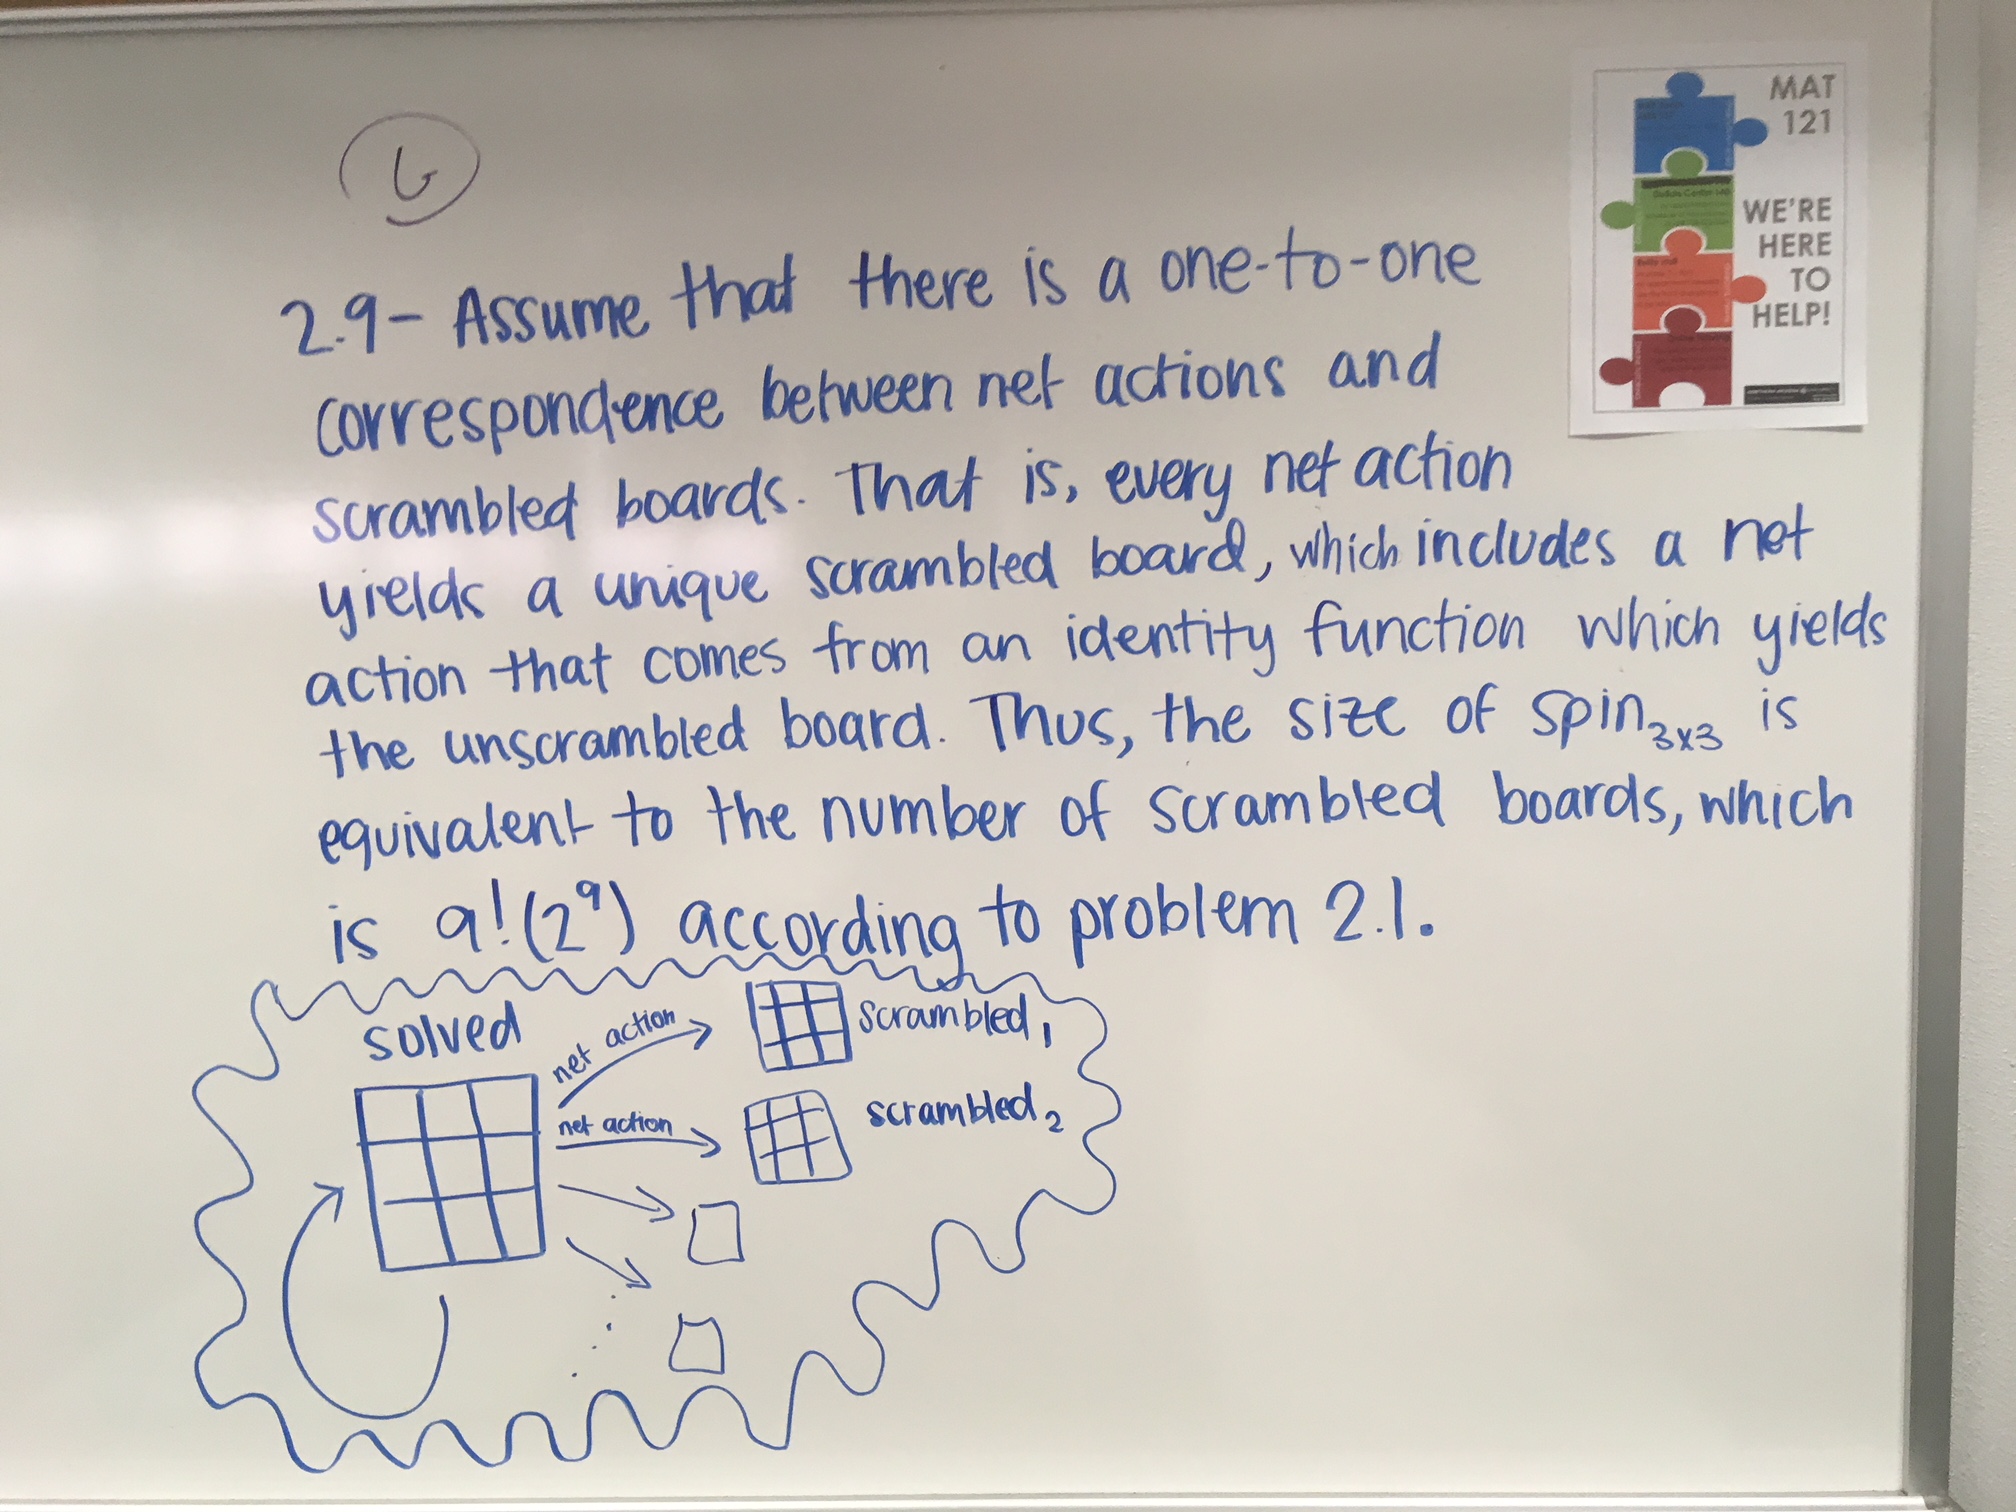 6
2.9- Assume that there is a one-to-one
correspondence between net actions and
scrambled boards. That is, every net action
yields a unique scrambled board, which includes a net
action that comes from an identity function which yields
the unscrambled board. Thus, the size of Spin3x3 is
equivalent to the number of scrambled boards, which
is 9!(2⁹) according to problem 2.1.
solved
net action
scrambled₁
net action
scrambled₂
MAT
121
WE'RE
HERE
TO
HELP!